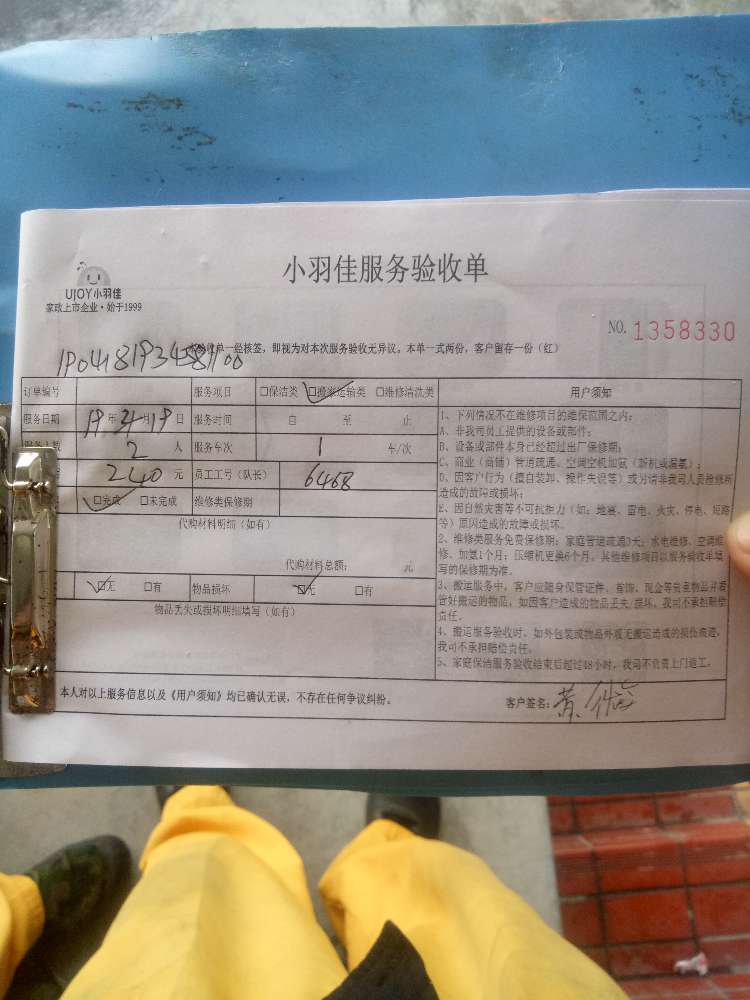 小羽佳服务验收单
UJOY小羽佳
家政上市企业·始于1999
NO. 1358330
验收单一经核签，即视为对本次服务验收无异议。本单一式两份，客户留存一份（红）
订单编号 服务项目 □保洁类 □搬家运输类 □维修清洗类 用户须知
服务日期 年 月 19 日 服务时间 自 至 止
2 人 服务车次 1 车/次
240 元 员工工号（队长） 6468
□完成 □未完成 维修类保修期
代购材料明细（如有）
代购材料总额： 元
□无 □有 物品损坏 □无 □有
物品丢失或损坏明细填写（如有）
1、下列情况不在维修项目的维保范围之内：
A、非我司员工提供的设备或部件；
B、设备或部件本身已经超过出厂保修期；
C、商业（商铺）管道疏通、空调空机加氨（新机或漏氨）；
D、因客户行为（擅自装卸、操作失误等）或另请非我司人员检修所
造成的故障或损坏；
E、因自然灾害等不可抗拒力（如：地震、雷电、火灾、停电、短路
等）原因造成的故障或损坏。
2、维修类服务免费保修期：家庭管道疏通3天；水电维修、空调维
修、加氨1个月；压缩机更换6个月。其他维修项目以服务验收单填
写的保修期为准。
3、搬运服务中，客户应随身保管证件、首饰、现金等贵重物品并看
管好搬运的物品，如因客户造成的物品丢失、损坏，我司不承担赔偿
责任。
4、搬运服务验收时，如外包装或物品外观无搬运造成的损伤痕迹，
我司不承担赔偿责任。
5、家庭保洁服务验收结束后超过48小时，我司不负责上门返工。
本人对以上服务信息以及《用户须知》均已确认无误，不存在任何争议纠纷。
客户签名：黄